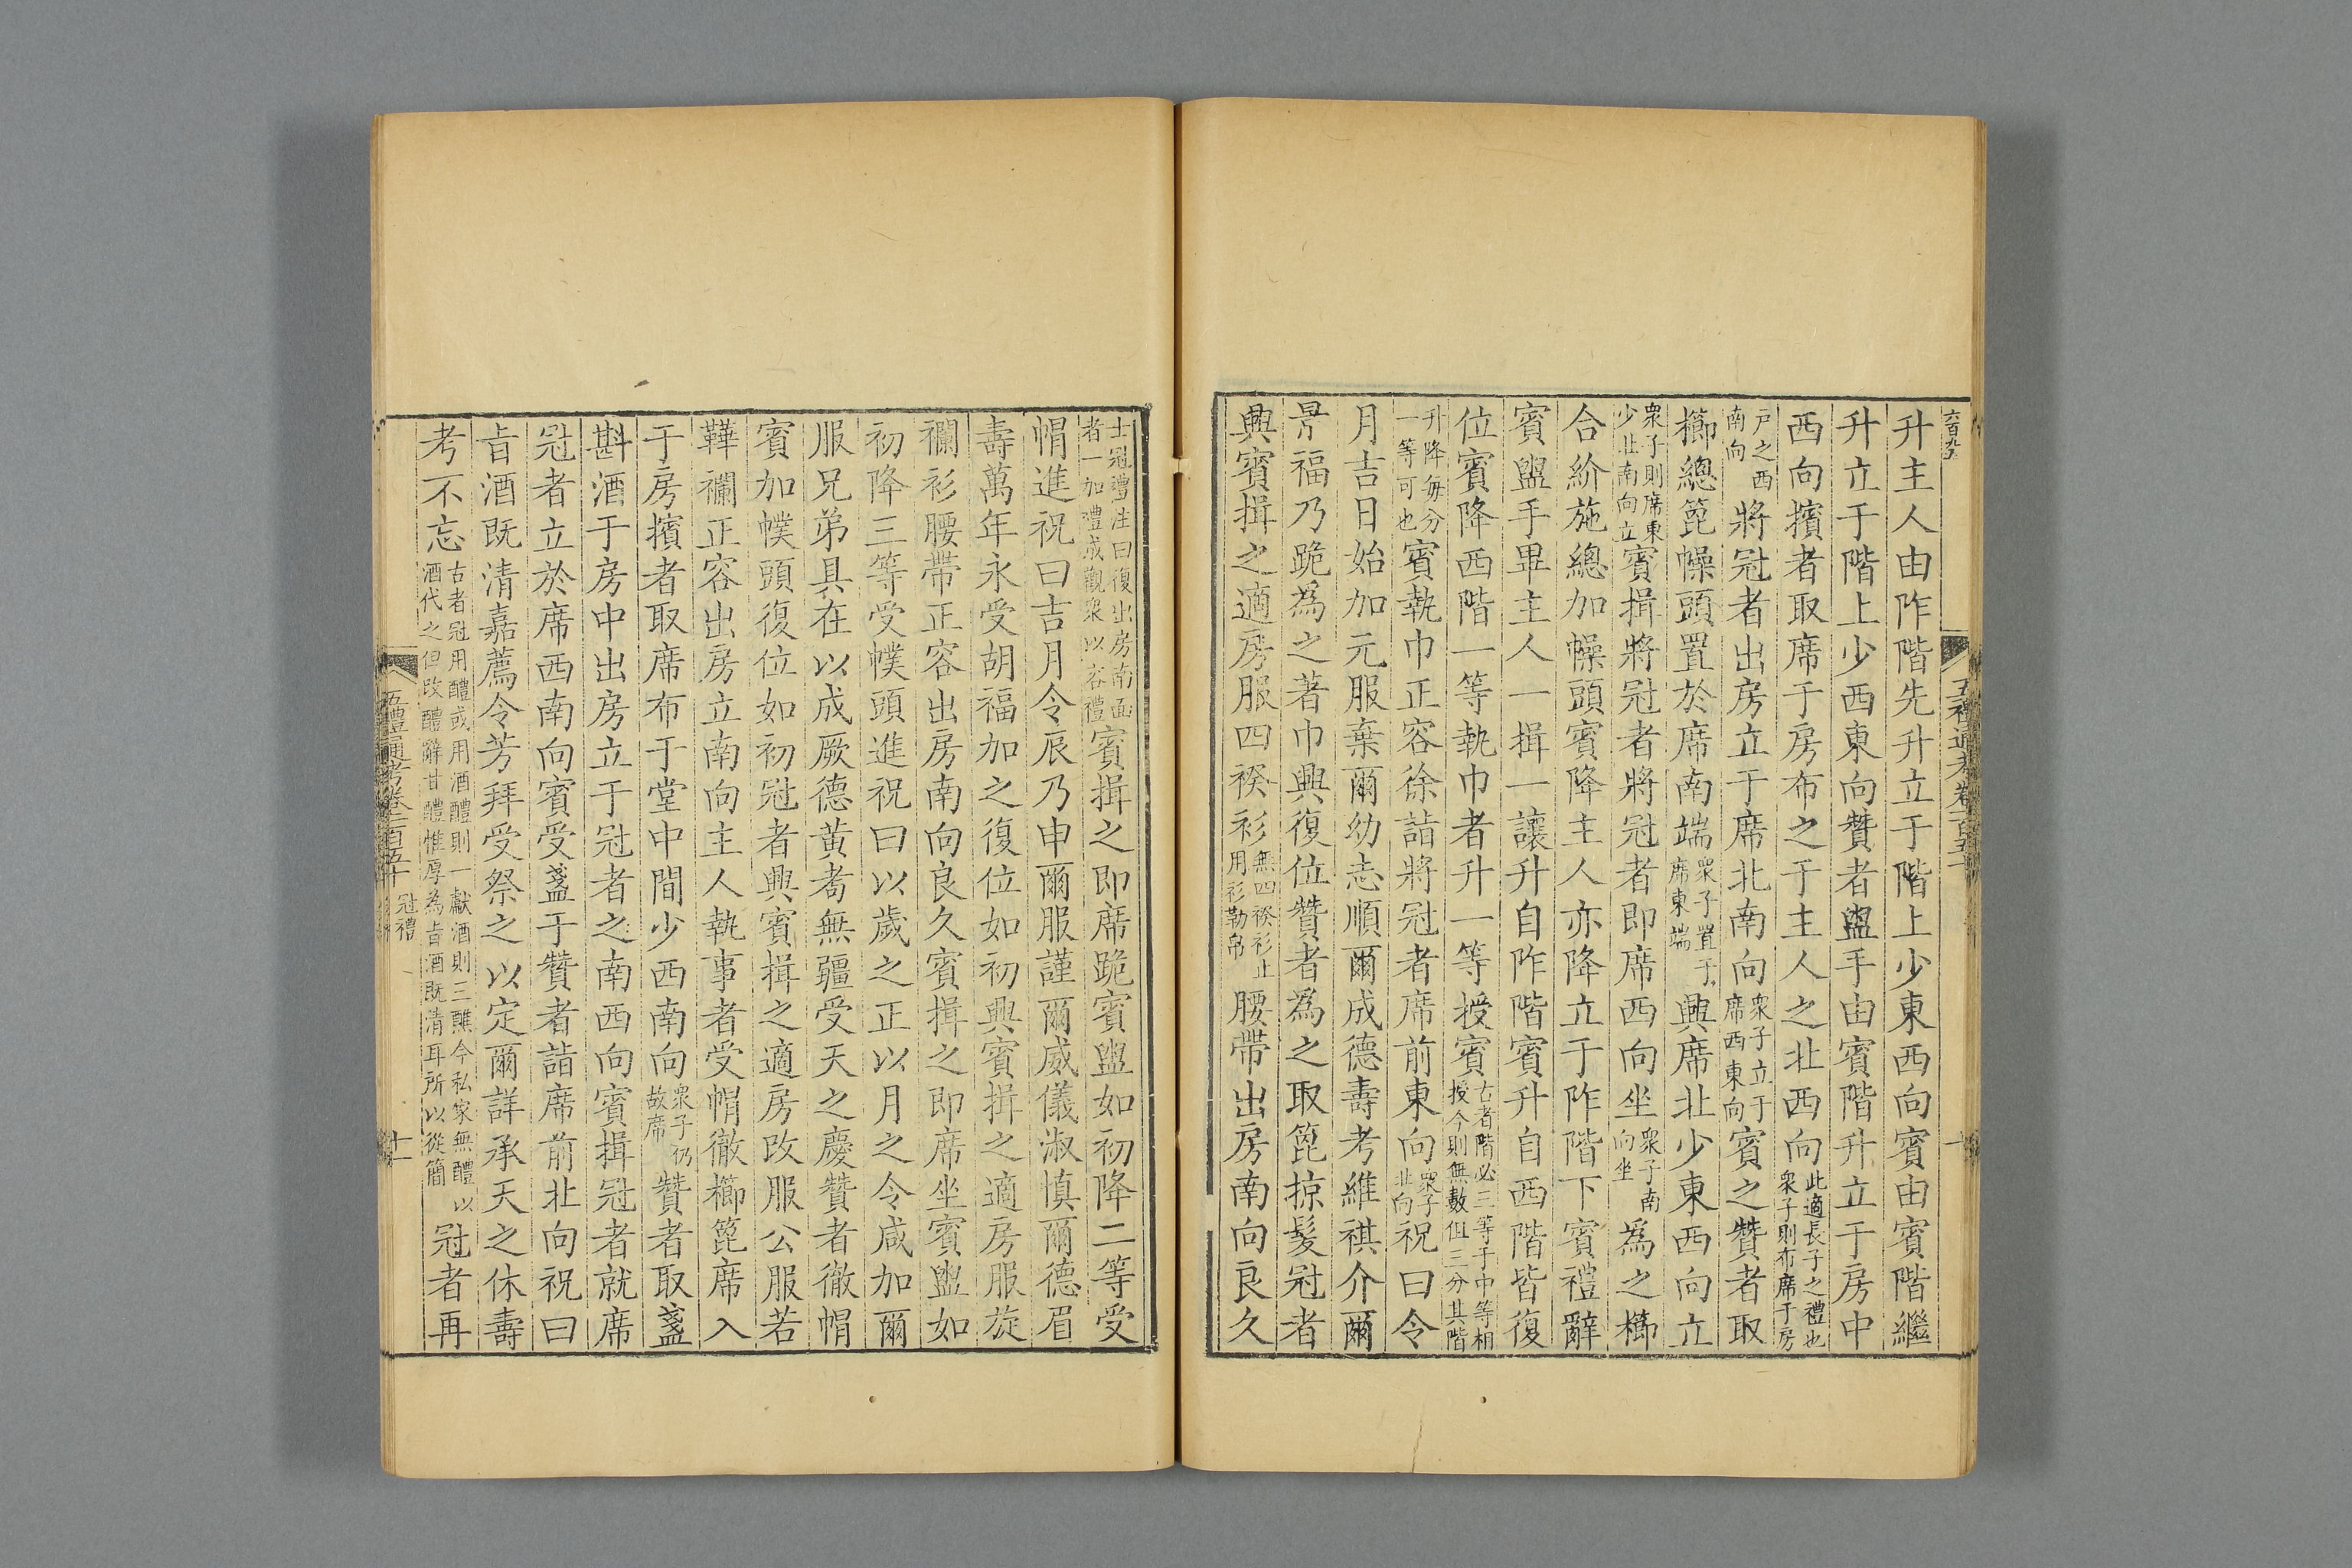 六百九
五禮通考卷一百五十
升主人由阼階先升立于階上少東西向賓由賓階繼
升立于階上少西東向贊者盥手由賓階升立于房中
西向擯者取席于房布之于主人之北西向此適長子之禮也衆子則布席于房
戶之西南向將冠者出房立于席北南向衆子立于席西東向賓之贊者取
櫛總篦幧頭置於席南端衆子置于席東端興席北少東西向立
衆子則席東少北南向立賓揖將冠者將冠者即席西向坐衆子南向坐為之櫛
合紒施總加幧頭賓降主人亦降立于阼階下賓禮辭
賓盥手畢主人一揖一讓升自阼階賓升自西階皆復
位賓降西階一等執巾者升一等授賓古者階必三等于中等相授今則無數但三分其階
升降每分一等可也賓執巾正容徐詣將冠者席前東向衆子北向祝曰令
月吉日始加元服棄爾幼志順爾成德壽考維祺介爾
景福乃跪為之著巾興復位贊者為之取篦掠髮冠者
興賓揖之適房服四䙆衫無四䙆衫止用衫勒帛腰帶出房南向良久
士冠禮注曰復出房南面者一加禮成觀衆以容禮賓揖之即席跪賓盥如初降二等受
帽進祝曰吉月令辰乃申爾服謹爾威儀淑慎爾德眉
壽萬年永受胡福加之復位如初興賓揖之適房服旋
襴衫腰帶正容出房南向良久賓揖之即席坐賓盥如
初降三等受幞頭進祝曰以歲之正以月之令咸加爾
服兄弟具在以成厥德黃耇無疆受天之慶贊者徹帽
賓加幞頭復位如初冠者興賓揖之適房改服公服若
鞾襴正容出房立南向主人執事者受帽徹櫛篦席入
于房擯者取席布于堂中間少西南向衆子仍故席贊者取盞
斟酒于房中出房立于冠者之南西向賓揖冠者就席
冠者立於席西南向賓受盞于贊者詣席前北向祝曰
旨酒既清嘉薦令芳拜受祭之以定爾詳承天之休壽
考不忘古者冠用醴或用酒醴則一獻酒則三醮今私家無醴以酒代之但改醴辭甘醴惟厚為旨酒既清耳所以從簡冠者再
五禮通考卷一百五十 冠禮 十一